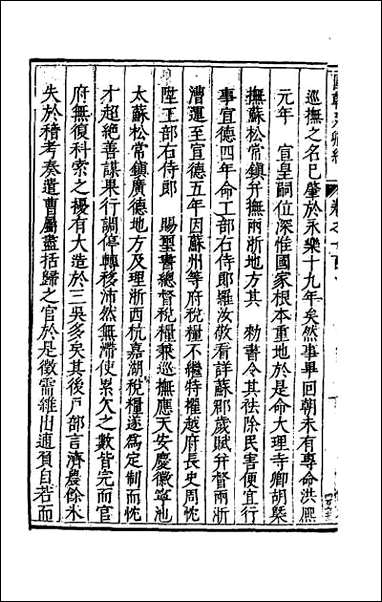 國朝列卿紀 卷之一百
巡撫之名已肇於永樂十九年矣然事畢回朝未有專命洪熈
元年　宣皇嗣位深惟國家根本重地於是命大理寺卿胡槩
撫蘇松常鎮并撫兩浙地方其　勑書令其祛除民害便宜行
事宣德四年命工部右侍郎羅汝敬看詳蘇郡歲賦并督兩浙
漕運至宣德五年因蘇州等府稅糧不繼特擢越府長史周忱
陞工部右侍郎　賜璽書總督稅糧兼巡撫應天安慶徽寧池
太蘇松常鎮廣德地方及理浙西杭嘉湖稅糧遂為定制而忱
才超絶善謀果行調停轉移沛然無滯使累欠之數皆完而官
府無復科索之擾有大造於三吳多矣其後戸部言濟農餘米
失於稽考奏遣曹屬盡括歸之官於是徵需雜出逋負自若而